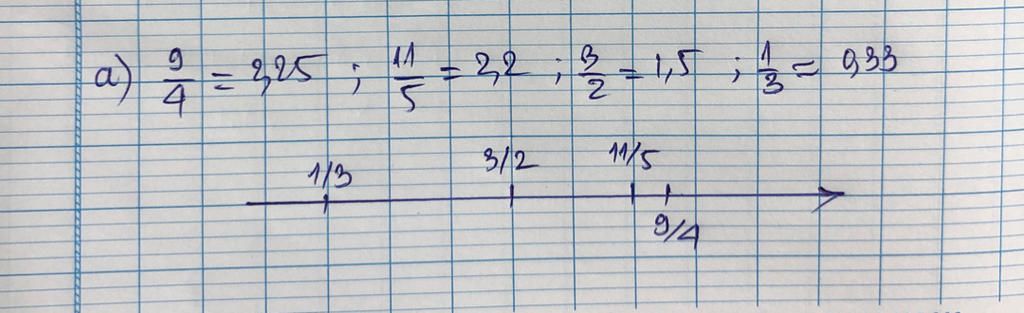 а) 9/4 = 2,25 ; 11/5 = 2,2 ; 3/2 = 1,5 ; 1/3 = 0,33
1/3 3/2 11/5
9/4